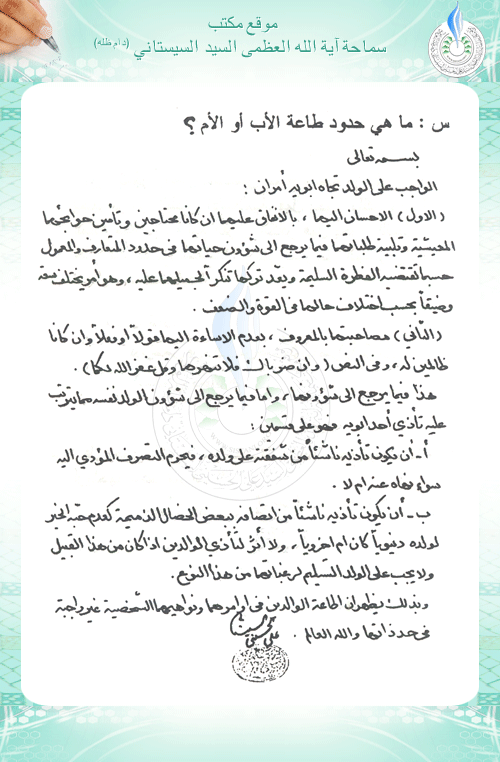 موقع مكتب
سماحة آية الله العظمى السيد السيستاني (دام ظله)
س : ما هي حدود طاعة الأب أو الأم ؟
بسمه تعالى
الواجب على الولد تجاه ابويه أمران :
(الاول) الاحسان اليهما ، بالانفاق عليهما ان كانا محتاجين وتأمين حوائجهما
المعيشية وتلبية طلباتهما فيما يرجع الى شؤون حياتهما في حدود المتعارف والمعمول
حسبما تقتضيه الفطرة السليمة ويعدّ تركها تنكراً لجميلهما عليه ، وهو أمر يختلف سعة
وضيقاً بحسب اختلاف حالهما في القوة والضعف .
(الثاني) مصاحبتهما بالمعروف ، بعدم الاساءة اليهما قولاً أو فعلاً وان كانا
ظالمين له ، وفي النص (وان ضرباك فلا تنهرهما وقل غفر الله لكما) .
هذا فيما يرجع الى شؤونهما ، واما فيما يرجع الى شؤون الولد نفسه مما يترتب
عليه تأذي أحد ابويه فهو على قسمين :
أ - ان يكون تأذيه ناشئاً من شفقته على ولده ، فيحرم التصرف المؤدي اليه
سواء نهاه عنه ام لا .
ب - أن يكون تأذيه ناشئاً من اتصافه ببعض الخصال الذميمة كعدم حبه الخير
لولده دنيوياً كان ام اخروياً ، ولا أثر لتأذي الوالدين اذا كان من هذا القبيل
ولا يجب على الولد التسليم لرغباتهما من هذا النوع .
وبذلك يظهر ان اطاعة الوالدين في اوامرهما ونواهيهما الشخصية غير واجبة
في حد ذاتها والله العالم .